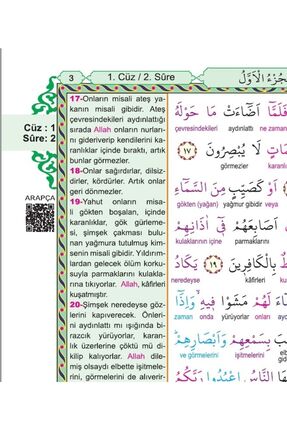 3
1. Cüz / 2. Sûre
اَلْجُزْءُ الْاَوَّلُ
Cüz : 1
Sûre: 2
ARAPÇA
17-Onların misali ateş ya-
kanın misali gibidir. Ateş
çevresindekileri aydınlattığı
sırada Allah onların nurları-
nı gideriverip kendilerini ka-
ranlıklar içinde bıraktı, artık
bunlar görmezler.
18-Onlar sağırdırlar, dilsiz-
dirler, kördürler. Artık onlar
geri dönmezler.
19-Yahut onların misa-
li gökten boşalan, içinde
karanlıklar, gök gürleme-
si, şimşek çakması bulu-
nan yağmura tutulmuş kim-
senin misali gibidir. Yıldırım-
lardan gelecek ölüm korku-
suyla parmaklarını kulakla-
rına tıkıyorlar. Allah, kâfirleri
kuşatmıştır.
20-Şimşek neredeyse göz-
lerini kapıverecek. Önleri-
ni aydınlattı mı ışığında bi-
razcık yürüyorlar, karan-
lık üzerlerine çöktü mü di-
kilip kalıyorlar. Allah dile-
miş olsaydı elbette işitmele-
rini, görmelerini de alıverir-
فَلَمَّٓا اَضَٓاءَتْ مَا حَوْلَهُ
çevresindekileri aydınlattı ne zaman
لَا يُبْصِرُونَ ﴿١٧﴾
görmezler karanlı
اَوْ كَصَيِّبٍ مِنَ السَّمَٓاءِ
gökten (yağan) yağmur gibidir veya
اَصَابِعَهُمْ فِٓي اٰذَانِهِمْ
kulaklarının içine parmaklarını
بِالْكَافِرِينَ ﴿١٩﴾ يَكَادُ
neredeyse kâfirleri
لَهُمْ مَشَوْا فِيهِ وَاِذَٓا
zaman onda yürüyorlar onları
بِسَمْعِهِمْ وَاَبْصَارِهِمْ
ve görmelerini işitmelerini
النَّاسُ اعْبُدُوا رَبَّكُمُ